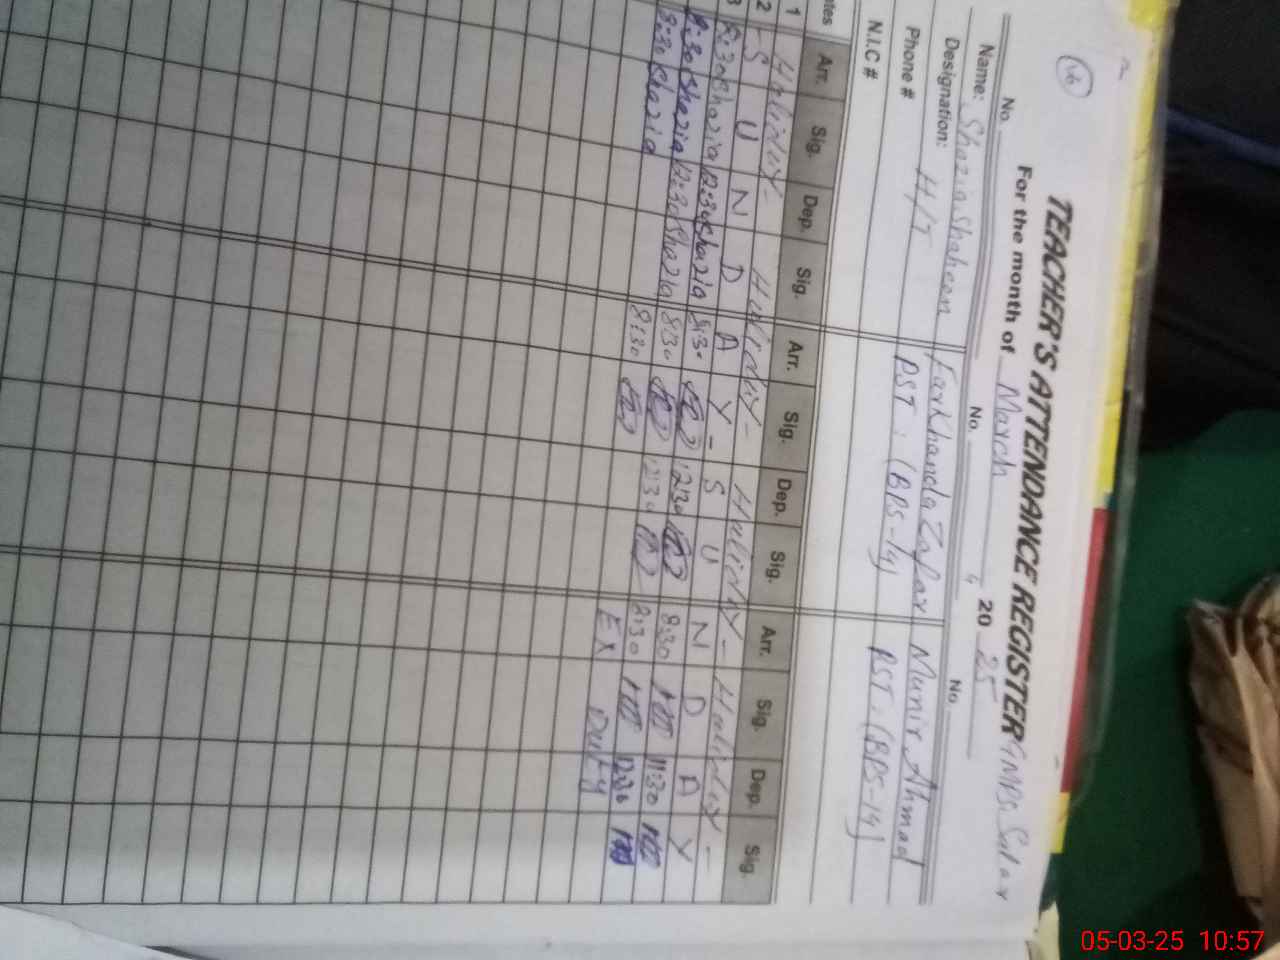 TEACHER'S ATTENDANCE REGISTER GMPS
For the month of March 20 25
No. No. No.
Name: Shazia Shaheen Farkhanda Zafar Munir Ahmad
Designation: H/T PST. (BPS-14) PST. (BPS-14)
Phone #
N.I.C #
Arr. Sig. Dep. Sig. Arr. Sig. Dep. Sig. Arr. Sig. Dep. Sig.
1 Holiday - Holiday - Holiday - Holiday -
2 - S U N D A Y - S U N D A Y
3 8:30 Shazia 12:30 Shazia 8:30 12:30 8:30 11:30
8:30 Shazia 12:30 Shazia 8:30 12:30 8:30 12:30
8:30 Shazia 8:30 EX Duty
05-03-25 10:57